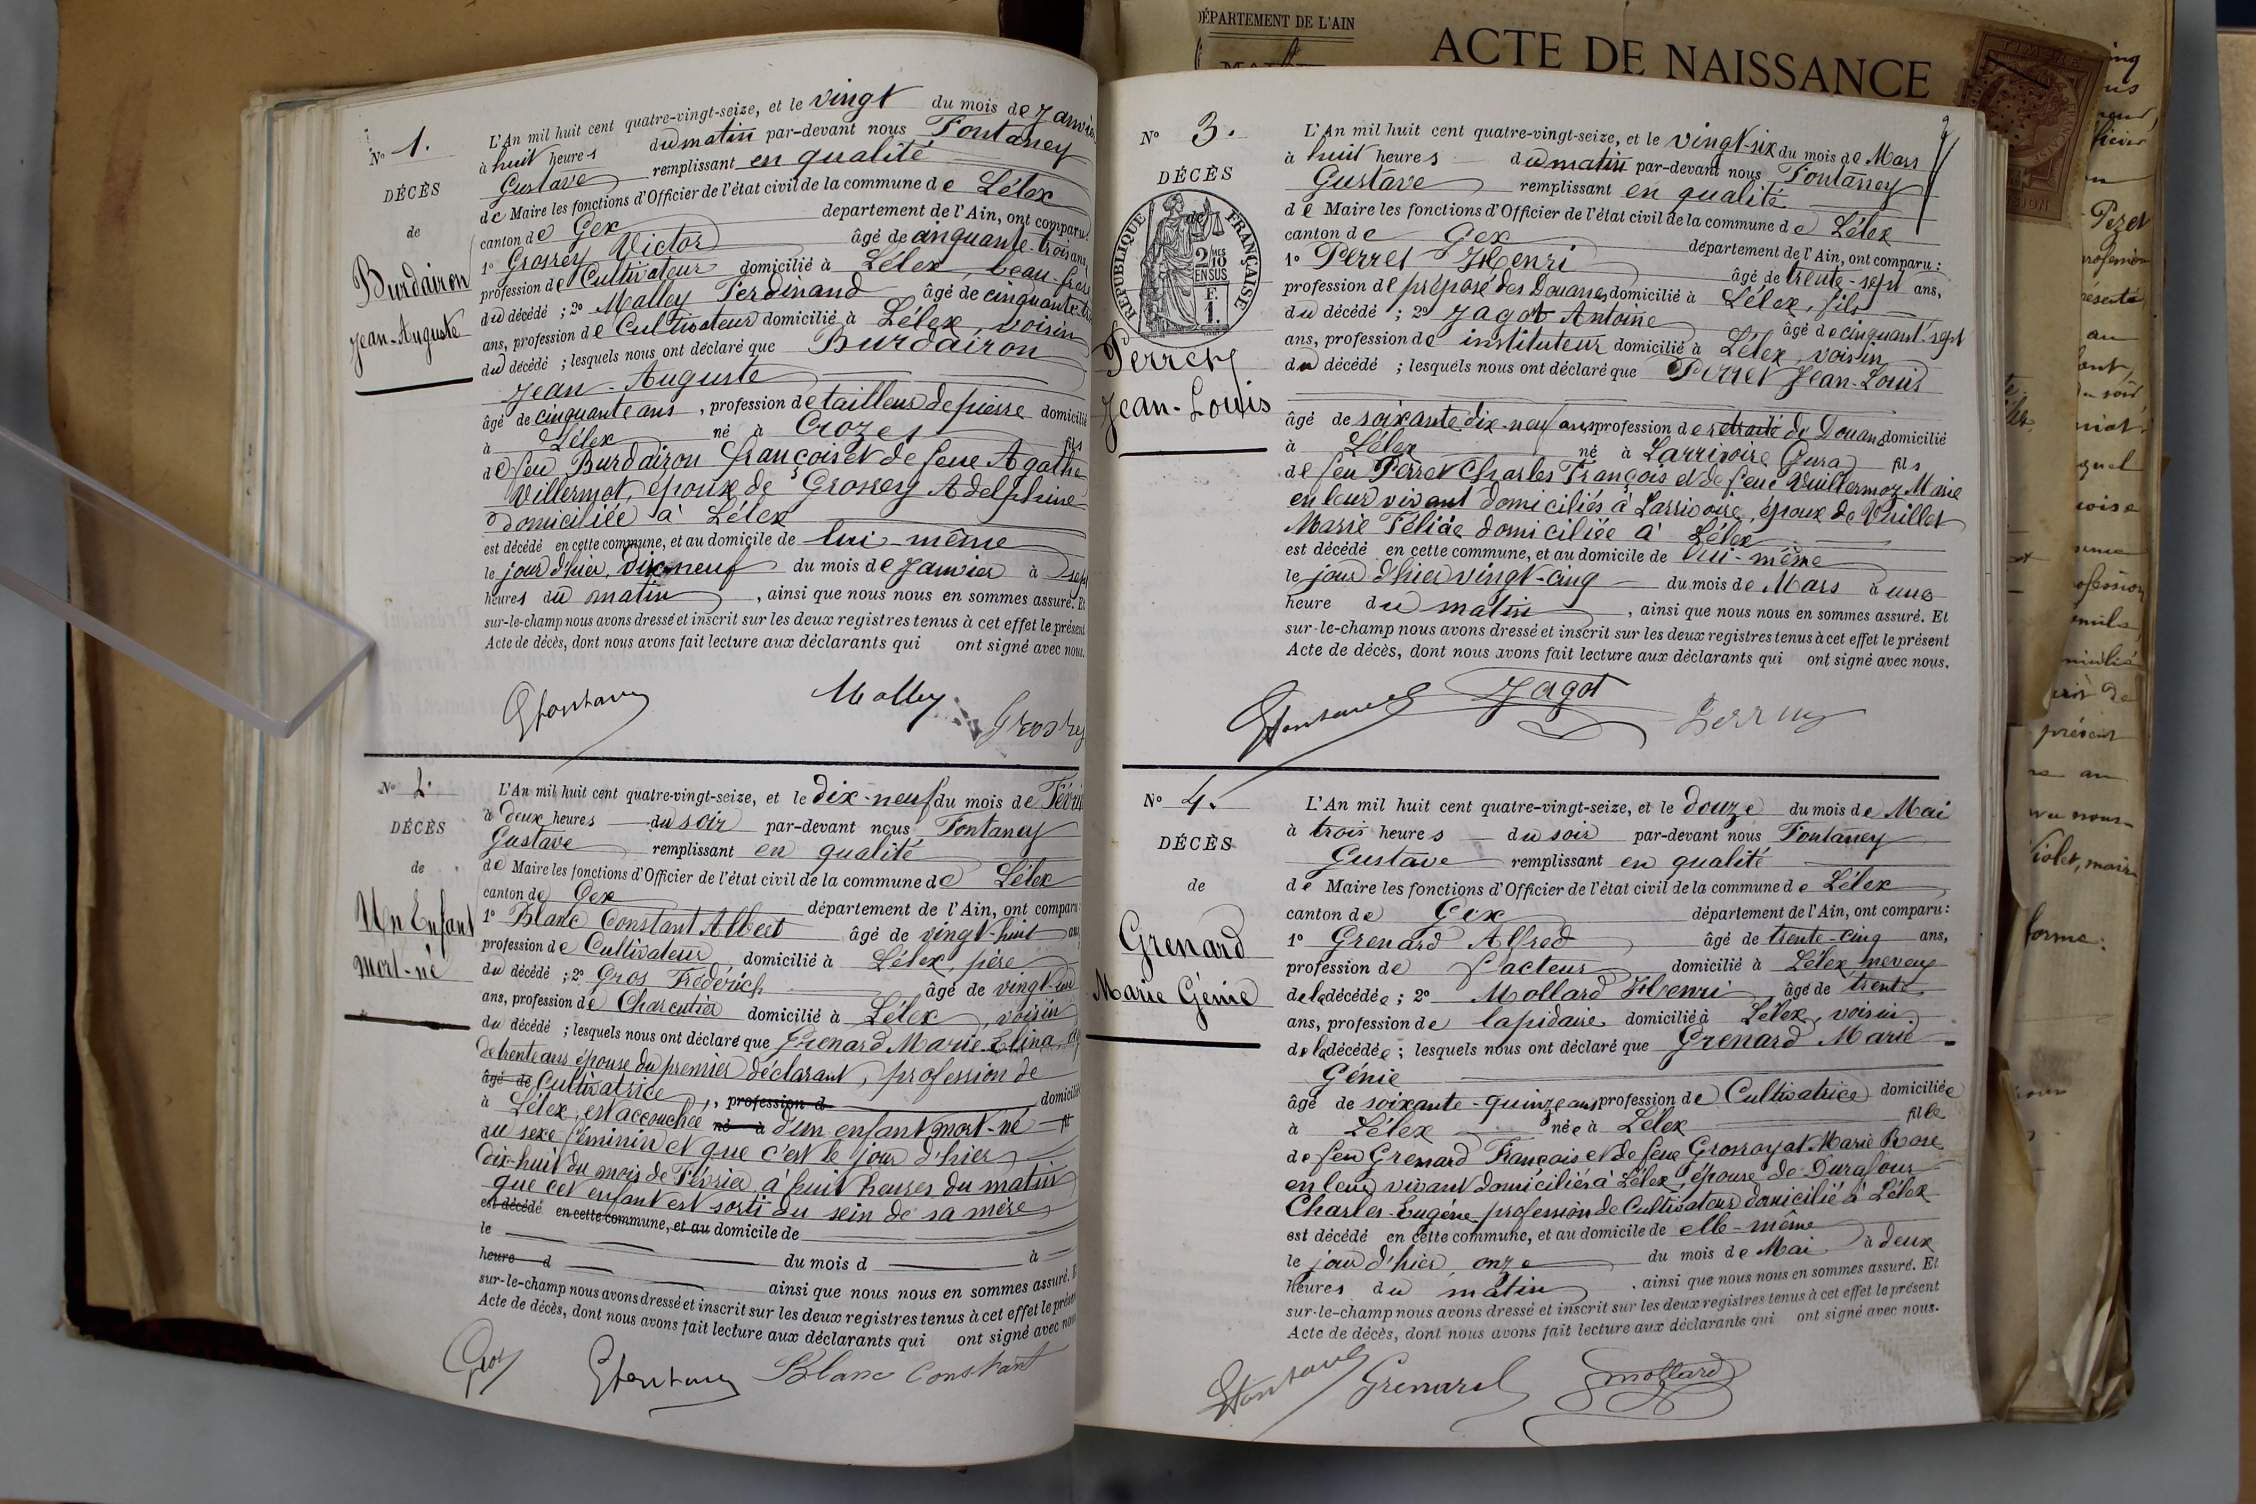 N° 1.
DÉCÈS
de
Burdairon
Jean-Auguste
L'An mil huit cent quatre-vingt-seize, et le vingt du mois de Janvier
à huit heures du matin par-devant nous Fontaney
Gustave remplissant en qualité
de Maire les fonctions d'Officier de l'état civil de la commune de Lélex
canton de Gex département de l'Ain, ont comparu:
1° Grosrey Victor âgé de cinquante-trois ans,
profession de Cultivateur domicilié à Lélex, beau-frère
du décédé ; 2° Malley Ferdinand âgé de cinquante
ans, profession de Cultivateur domicilié à Lélex, voisin
du décédé ; lesquels nous ont déclaré que Burdairon
Jean-Auguste
âgé de cinquante ans, profession de tailleur de pierre domicilié
à Lélex né à Crozet fils
de feu Burdairon François et de feue Agathe
Villermot, époux de Grosrey Adelphine
domiciliée à Lélex
est décédé en cette commune, et au domicile de lui-même
le jour d'hier, dix-neuf du mois de Janvier à sept
heures du matin, ainsi que nous nous en sommes assuré. Et
sur-le-champ nous avons dressé et inscrit sur les deux registres tenus à cet effet le présent
Acte de décès, dont nous avons fait lecture aux déclarants qui ont signé avec nous.
Gfontaney Malley Grosrey
N° 2.
DÉCÈS
de
Un Enfant
mort-né
L'An mil huit cent quatre-vingt-seize, et le dix-neuf du mois de Févri
à deux heures du soir par-devant nous Fontaney
Gustave remplissant en qualité
de Maire les fonctions d'Officier de l'état civil de la commune de Lélex
canton de Gex département de l'Ain, ont comparu:
1° Blanc Constant Albert âgé de vingt-huit ans
profession de Cultivateur domicilié à Lélex, père
du décédé ; 2° Gros Frédérich âgé de vingt-un
ans, profession de Charcutier domicilié à Lélex, voisin
du décédé ; lesquels nous ont déclaré que Grenard Marie-Elina
de trente ans épouse du premier déclarant, profession de
âgé de Cultivatrice, profession d domicilié
à Lélex, est accouchée né à d'un enfant mort-né fil
du sexe féminin et que c'est le jour d'hier
dix-huit du mois de Février, à huit heures du matin
que cet enfant est sorti du sein de sa mère
est décédé en cette commune, et au domicile de
le
heure d du mois d à
ainsi que nous nous en sommes assuré. E
sur-le-champ nous avons dressé et inscrit sur les deux registres tenus à cet effet le présent
Acte de décès, dont nous avons fait lecture aux déclarants qui ont signé avec nous
Gros Gfontaney Blanc Constant
DÉPARTEMENT DE L'AIN
ACTE DE NAISSANCE
N° 3.
DÉCÈS
de
RÉPUBLIQUE FRANÇAISE
2/10 EN SUS
F.
1.
Perret
Jean-Louis
L'An mil huit cent quatre-vingt-seize, et le vingt-six du mois de Mars
à huit heures du matin par-devant nous Fontaney
Gustave remplissant en qualité
de Maire les fonctions d'Officier de l'état civil de la commune de Lélex
canton de Gex département de l'Ain, ont comparu :
1° Perret Henri âgé de trente-sept ans,
profession de préposé des Douanes domicilié à Lélex, fils
du décédé ; 2° Jagot Antoine âgé de cinquant-sept
ans, profession de instituteur domicilié à Lélex, voisin
du décédé ; lesquels nous ont déclaré que Perret Jean-Louis
âgé de soixante dix-neuf ans profession de retraité de Douane domicilié
à Lélex né à Larrivoire (Jura) fils
de feu Perret Charles François et de feue Vuillermoz Marie
en leur vivant domiciliés à Larrivoire, époux de Vuillet
Marie Félicie domiciliée à Lélex
est décédé en cette commune, et au domicile de lui-même
le jour d'hier vingt-cinq du mois de Mars à une
heure du matin, ainsi que nous nous en sommes assuré. Et
sur-le-champ nous avons dressé et inscrit sur les deux registres tenus à cet effet le présent
Acte de décès, dont nous avons fait lecture aux déclarants qui ont signé avec nous.
Gfontaney Jagot Perret
N° 4.
DÉCÈS
de
Grenard
Marie Génie
L'An mil huit cent quatre-vingt-seize, et le douze du mois de Mai
à trois heures du soir par-devant nous Fontaney
Gustave remplissant en qualité
de Maire les fonctions d'Officier de l'état civil de la commune de Lélex
canton de Gex département de l'Ain, ont comparu:
1° Grenard Alfred âgé de trente-cinq ans,
profession de facteur domicilié à Lélex neveux
de la décédée ; 2° Mollard Henri âgé de trente
ans, profession de lapidaire domicilié à Lélex, voisin
de la décédée ; lesquels nous ont déclaré que Grenard Marie
Génie
âgé de soixante-quinze ans profession de Cultivatrice domiciliée
à Lélex née à Lélex fille
de feu Grenard François et de feue Grosroyat Marie Rose
en leur vivant domiciliés à Lélex, épouse de Durafour
Charles-Eugène profession de Cultivateur domicilié à Lélex
est décédé en cette commune, et au domicile de elle-même
le jour d'hier onze du mois de Mai à deux
heures du matin, ainsi que nous nous en sommes assuré. Et
sur-le-champ nous avons dressé et inscrit sur les deux registres tenus à cet effet le présent
Acte de décès, dont nous avons fait lecture aux déclarants qui ont signé avec nous.
Gfontaney Grenard Mollard
Pezet
profession
au
présent
Violet, maire
forme: